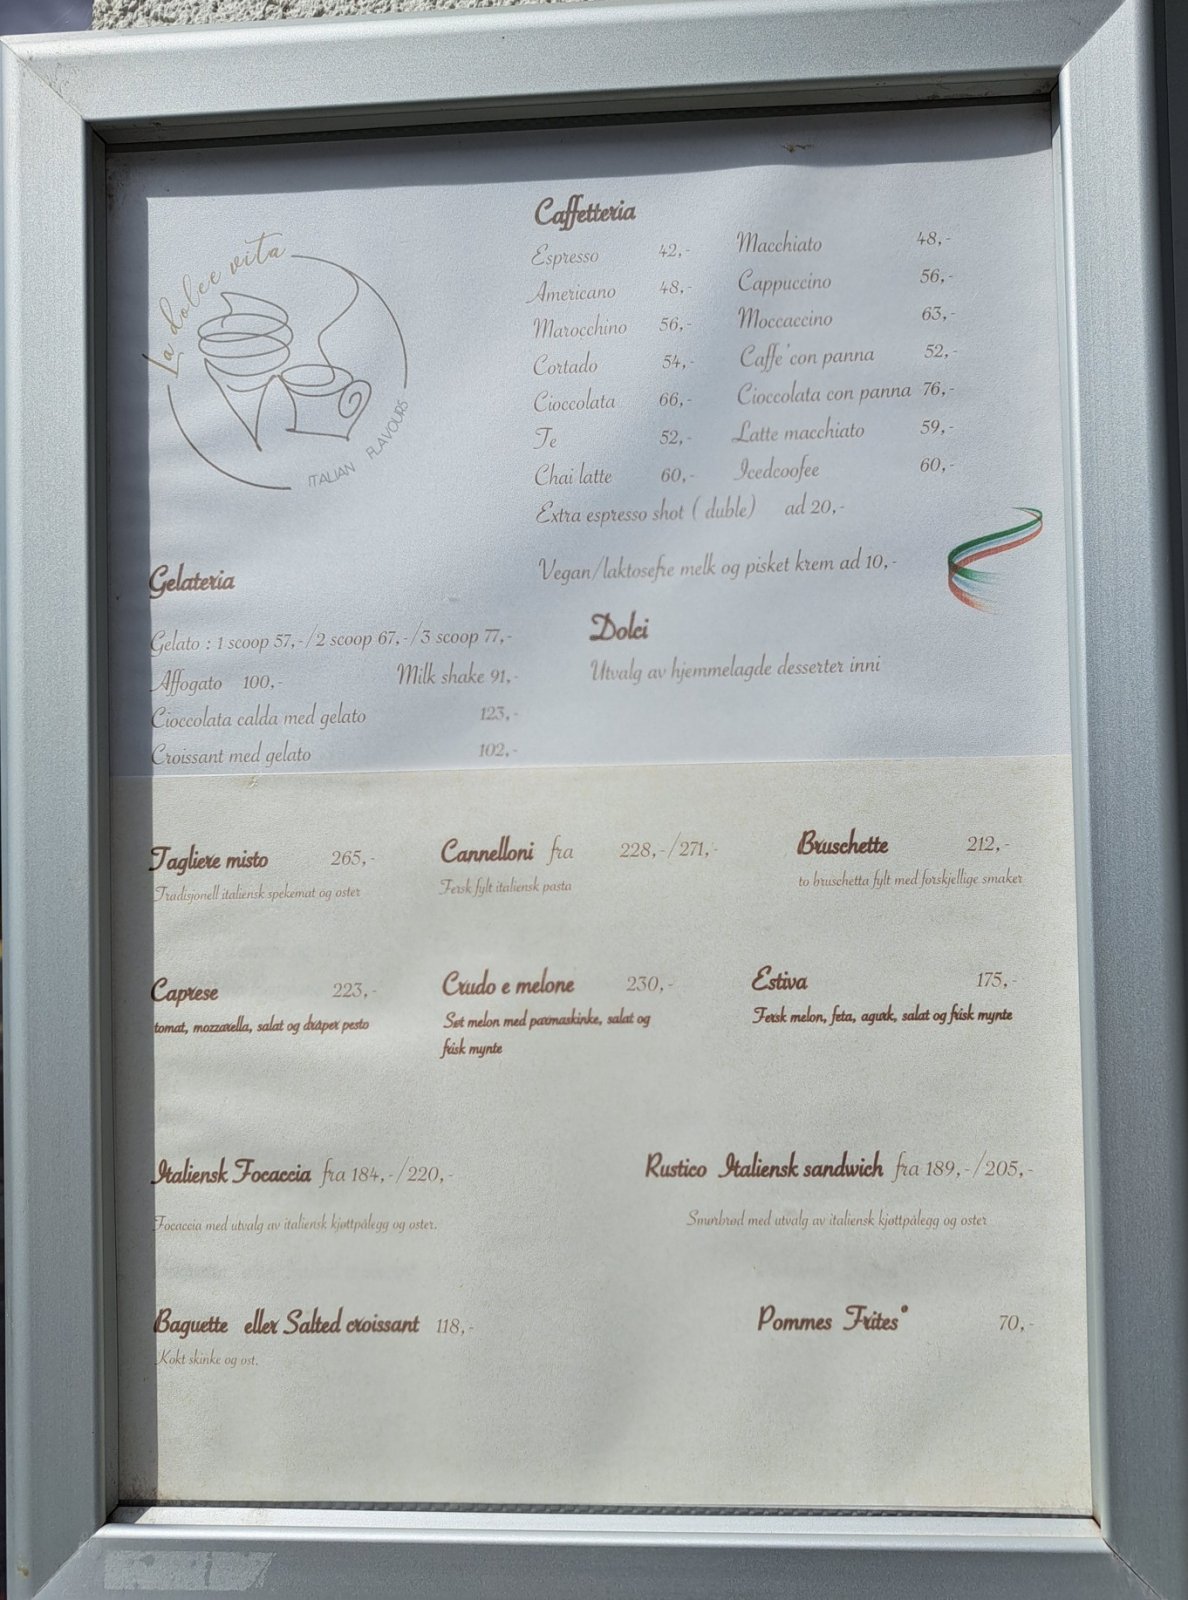 La dolce vita
ITALIAN FLAVOURS
Caffetteria
Espresso 42,-
Americano 48,-
Marocchino 56,-
Cortado 54,-
Cioccolata 66,-
Te 52,-
Chai latte 60,-
Macchiato 48,-
Cappuccino 56,-
Moccaccino 63,-
Caffe'con panna 52,-
Cioccolata con panna 76,-
Latte macchiato 59,-
Icedcoofee 60,-
Extra espresso shot ( duble) ad 20,-
Vegan/laktosefre melk og pisket krem ad 10,-
Gelateria
Gelato : 1 scoop 57,-/2 scoop 67,-/3 scoop 77,-
Affogato 100,- Milk shake 91,-
Cioccolata calda med gelato 123,-
Croissant med gelato 102,-
Dolci
Utvalg av hjemmelagde desserter inni
Tagliere misto 265,-
Tradisjonell italiensk spekemat og oster
Cannelloni fra 228,-/271,-
Fersk fylt italiensk pasta
Bruschette 212,-
to bruschetta fylt med forskjellige smaker
Caprese 223,-
tomat, mozzarella, salat og dråper pesto
Crudo e melone 230,-
Søt melon med parmaskinke, salat og
frisk mynte
Estiva 175,-
Fersk melon, feta, agurk, salat og frisk mynte
Italiensk Focaccia fra 184,-/220,-
Focaccia med utvalg av italiensk kjøttpålegg og oster.
Rustico Italiensk sandwich fra 189,-/205,-
Smørbrød med utvalg av italiensk kjøttpålegg og oster
Baguette eller Salted croissant 118,-
Kokt skinke og ost.
Pommes Frites* 70,-